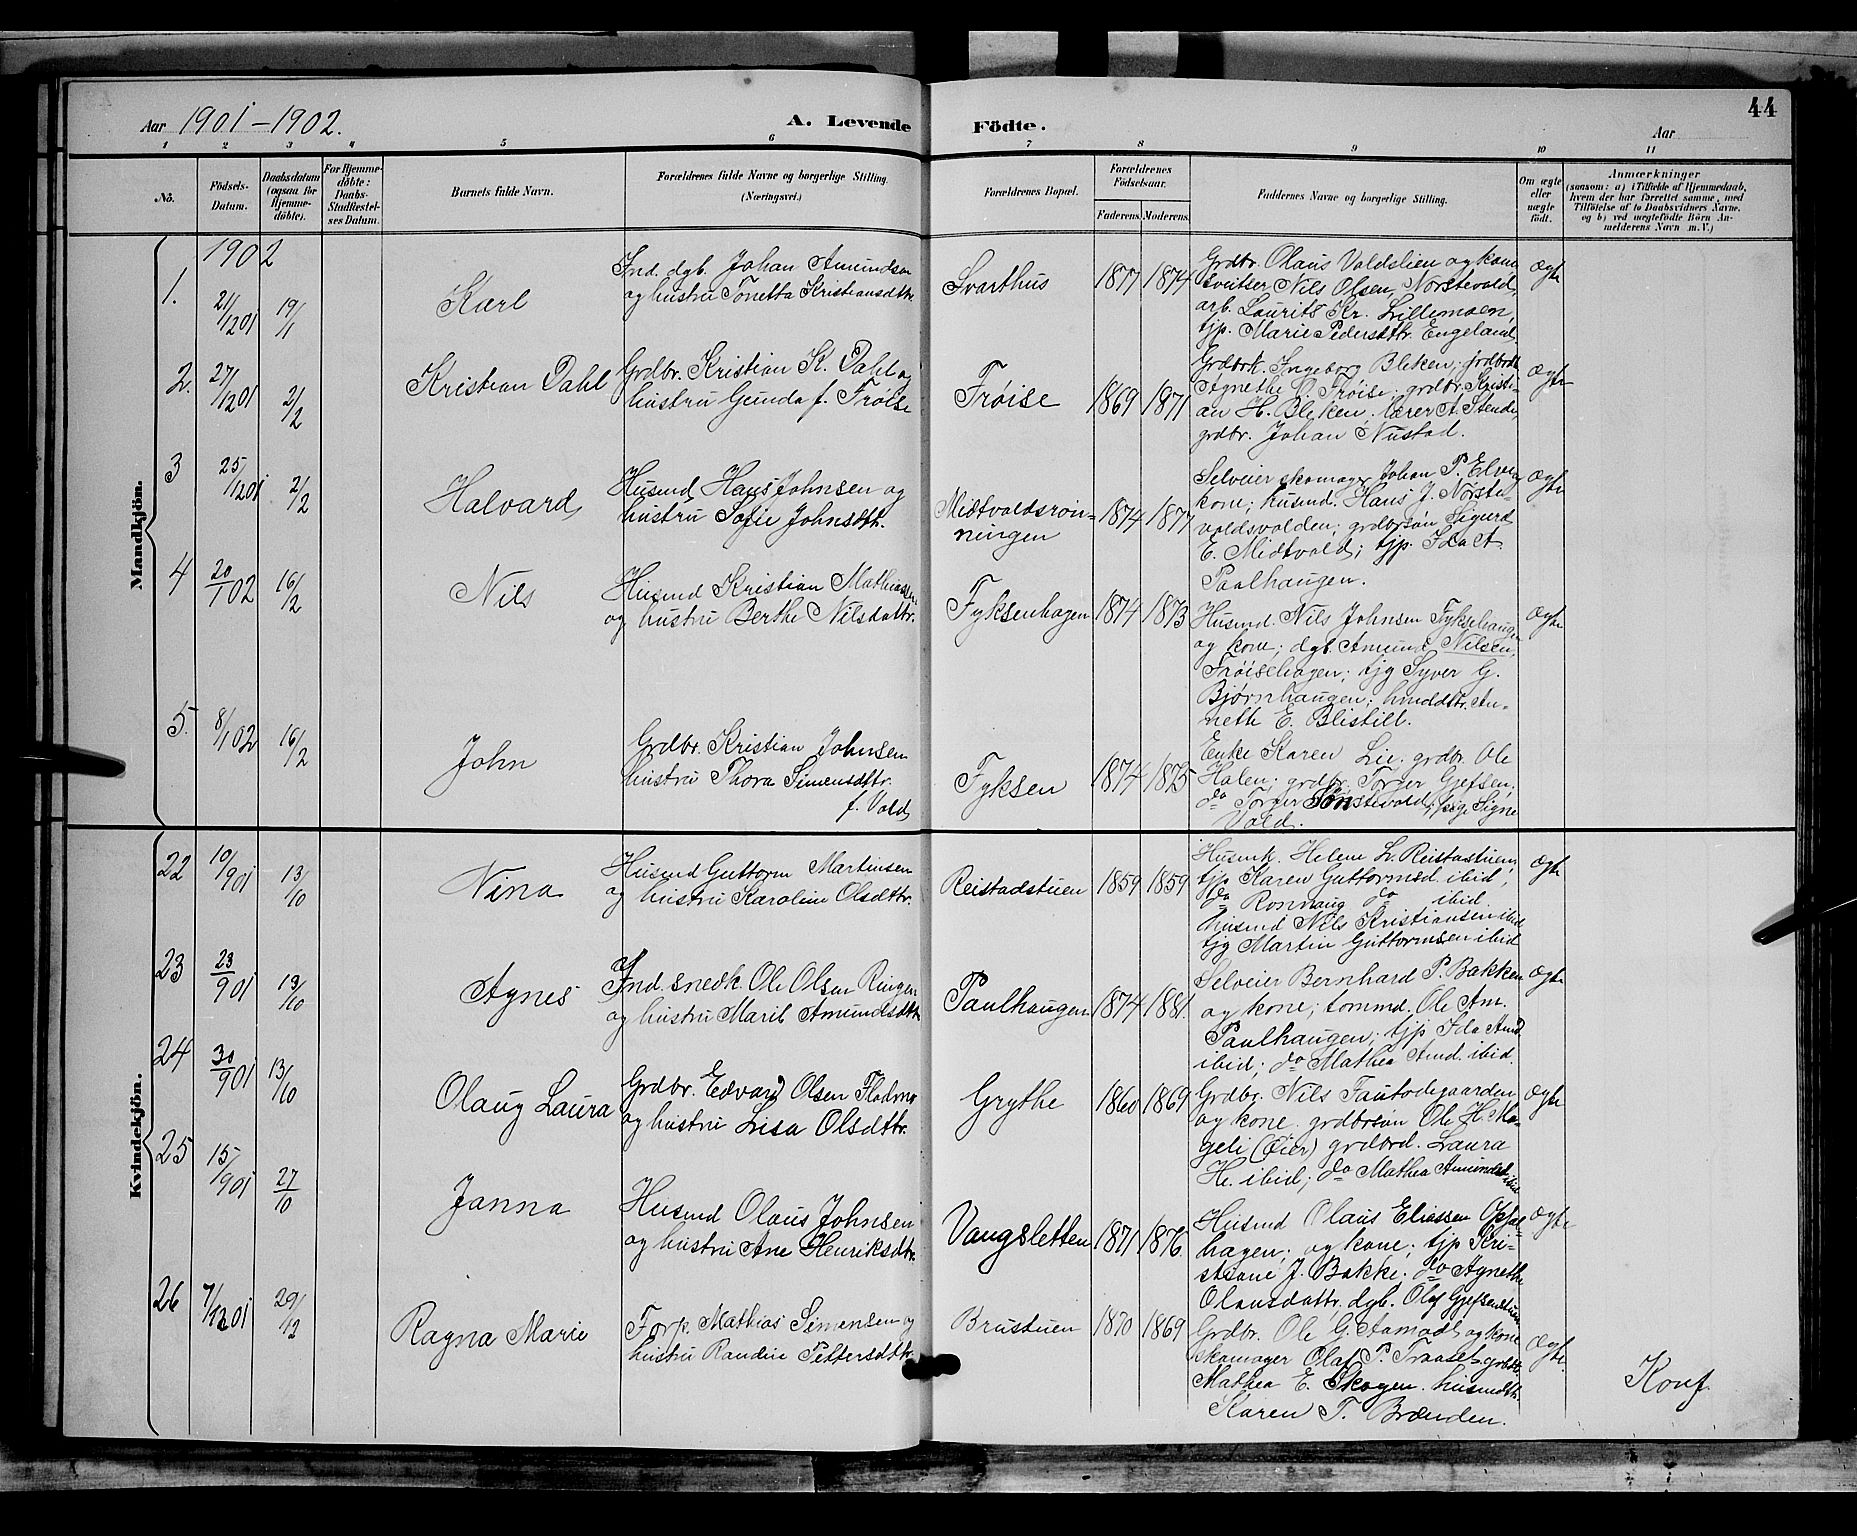 44
Aar 1901-1902.
A. Levende Födte.
Aar
1 2 3 4 5 6 7 8 9 10 11
No.
Födsels-Datum.
Daabsdatum (ogsaa for Hjemmedöbte).
For Hjemmedöbte: Daabs-Stadfæstelses Datum.
Barnets fulde Navn.
Forældrenes fulde Navne og borgerlige Stilling. (Næringsvei.)
Forældrenes Bopæl.
Forældrenes Födselsaar.
Faderens. Moderens.
Faddernes Navne og borgerlige Stilling.
Om ægte eller uægte födt.
Anmærkninger
(saasom: a) i Tilfælde af Hjemmedaab, hvem der har forrettet samme, med Tilföielse af to Daabsvidners Navne, og b) ved uægtefödte Börn Anmelderens Navn m. V.)
Mandkjön.
1902
1. 21/12 01 19/1 Karl
Ind. dgb. Johan Amundsen
og hustru Tonetta Kristiansdttr.
Svarthus 1877 1874
Grdbr. Olaus Valdslien og kone
sveitser Nils Olsen, Norstevold,
arb. Laurits Kr. Lillemoen,
tjp. Marie Pedersdttr. Engeland
Ægte
2. 27/12 01 2/2 Kristian Dahl
Grdbr. Kristian K. Dahl og
hustru Gunda f. Frøise
Frøise 1869 1871
Grdbrk. Ingeborg Bleken; grdbrdtr.
Agnethe O. Frøise; grdbr. Kristi-
an H. Bleken. lærer A. Stende,
grdbr. Johan Nustad.
Ægte
3 25/12 01 2/2 Halvard
Husmd. Hans Johnsen og
hustru Sofie Johnsdttr.
Midtvoldsrøn-
ningen 1874 1877
Selveier skomager Johan P. Elven
kone; husmd. Hans J. Norste-
voldsvolden; grdbrsøn Sigurd
E. Midtvold; tjp. Ida A.
Paulhaugen.
Ægte
4 20/1 02 16/2 Nils
Husmd Kristian Mathiassen
og hustru Berthe Nilsdattr.
Fyksenhagen 1874 1873
Husmd. Nils Johnsen Fyksehaugen
og kone; dgb. Amund Nilsen,
Frøisehagen; tjg Syver G.
Bjørnhaugen; husmddttr. An-
neth E. Blistill.
Ægte
5. 8/1 02 16/2 John
Grdbr. Kristian Johnsen
hustru Thora Simensdttr.
f. Vold
Fyksen 1874 1875
Enke Karen Lie. grdbr. Ole
Holen; grdbr. Torger Gjefsen;
do Torger Sønstevold; pige Signe
Vold.
Kvindekjön.
22 10/9 01 13/10 Nina
Husmd Guttorm Martinsen
og hustru Karoline Olsdttr.
Reistadstuen 1859 1859
Husmk. Helene L. Reistastuen;
tjp Karen Guttormsd. ibid;
do Ronnaug do ibid.
husmd Nils Kristiansen ibid
tjg Martin Guttormsen ibid
Ægte
23 23/9 01 13/10 Agnes
Ind. snedk. Ole Olsen Ringen
og hustru Marit Amundsdttr
Paulhaugen 1874 1881.
Selveier Bernhard P. Bakken
og kone; tommd. Ole Am.
Paulhaugen; tjp Ida Amd.
ibid; do Mathea Amd. ibid.
Ægte
24 30/9 01 13/10 Olaug Laura
Grdbr. Edvard Olsen Flodmo
og hustru Lisa Olsdttr.
Grythe 1860 1869
Grdbr. Nils Fautodegaarden
og kone. grdbrsøn Ole H. Mo-
geli (Øier) grdbrd. Laura
He. ibid; do Mathea Amundsd ibid
Ægte
25 15/9 01 27/10 Janna
Husmd Olaus Johnsen
og hustru Ane Henriksdtr.
Vangsletten 1871 1876.
Husmd Olaus Eliassen Opsal-
hagen; og kone; tjp Kri-
stiane J. Bakke. do Agnethe
Olausdattr, dgb. Olaf Gjefsenstuen
Ægte
26 7/12 01 29/12 Ragna Marie
Forp. Mathias Simensen og
hustru Randine Pettersdttr.
Brustuen 1870 1869
Grdbr. Ole G. Aamodt og kone
skomager Olaf P. Traaset. grdbdtr.
Mathea E. Skogen. husmdtr.
Karen T. Brænden.
Ægte.
Konf